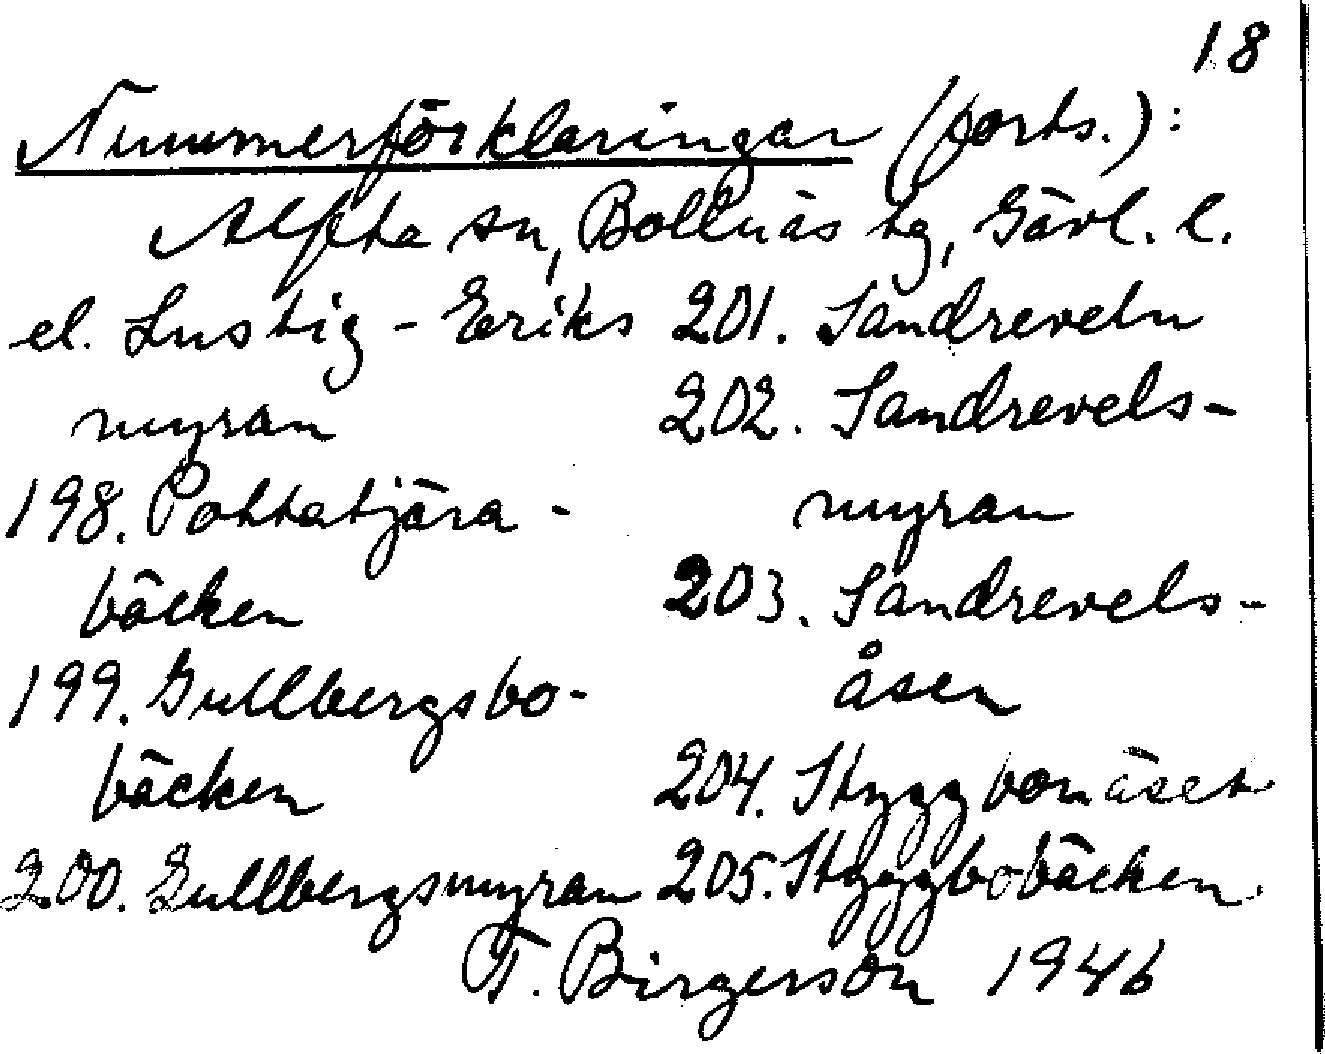 18
Nummerförklaringar (forts.):
Alfta sn, Bollnäs tg, Gävl. l.
el. Lustig-Eriks
myran
198. Pottatjära-
bäcken
199. Gullbergsbo-
bäcken
200. Gullbergsmyran
201. Sandreveln
202. Sandrevels-
myran
203. Sandrevels-
åsen
204. Styggbonäset
205. Styggbobäcken
F. Birgerson 1946